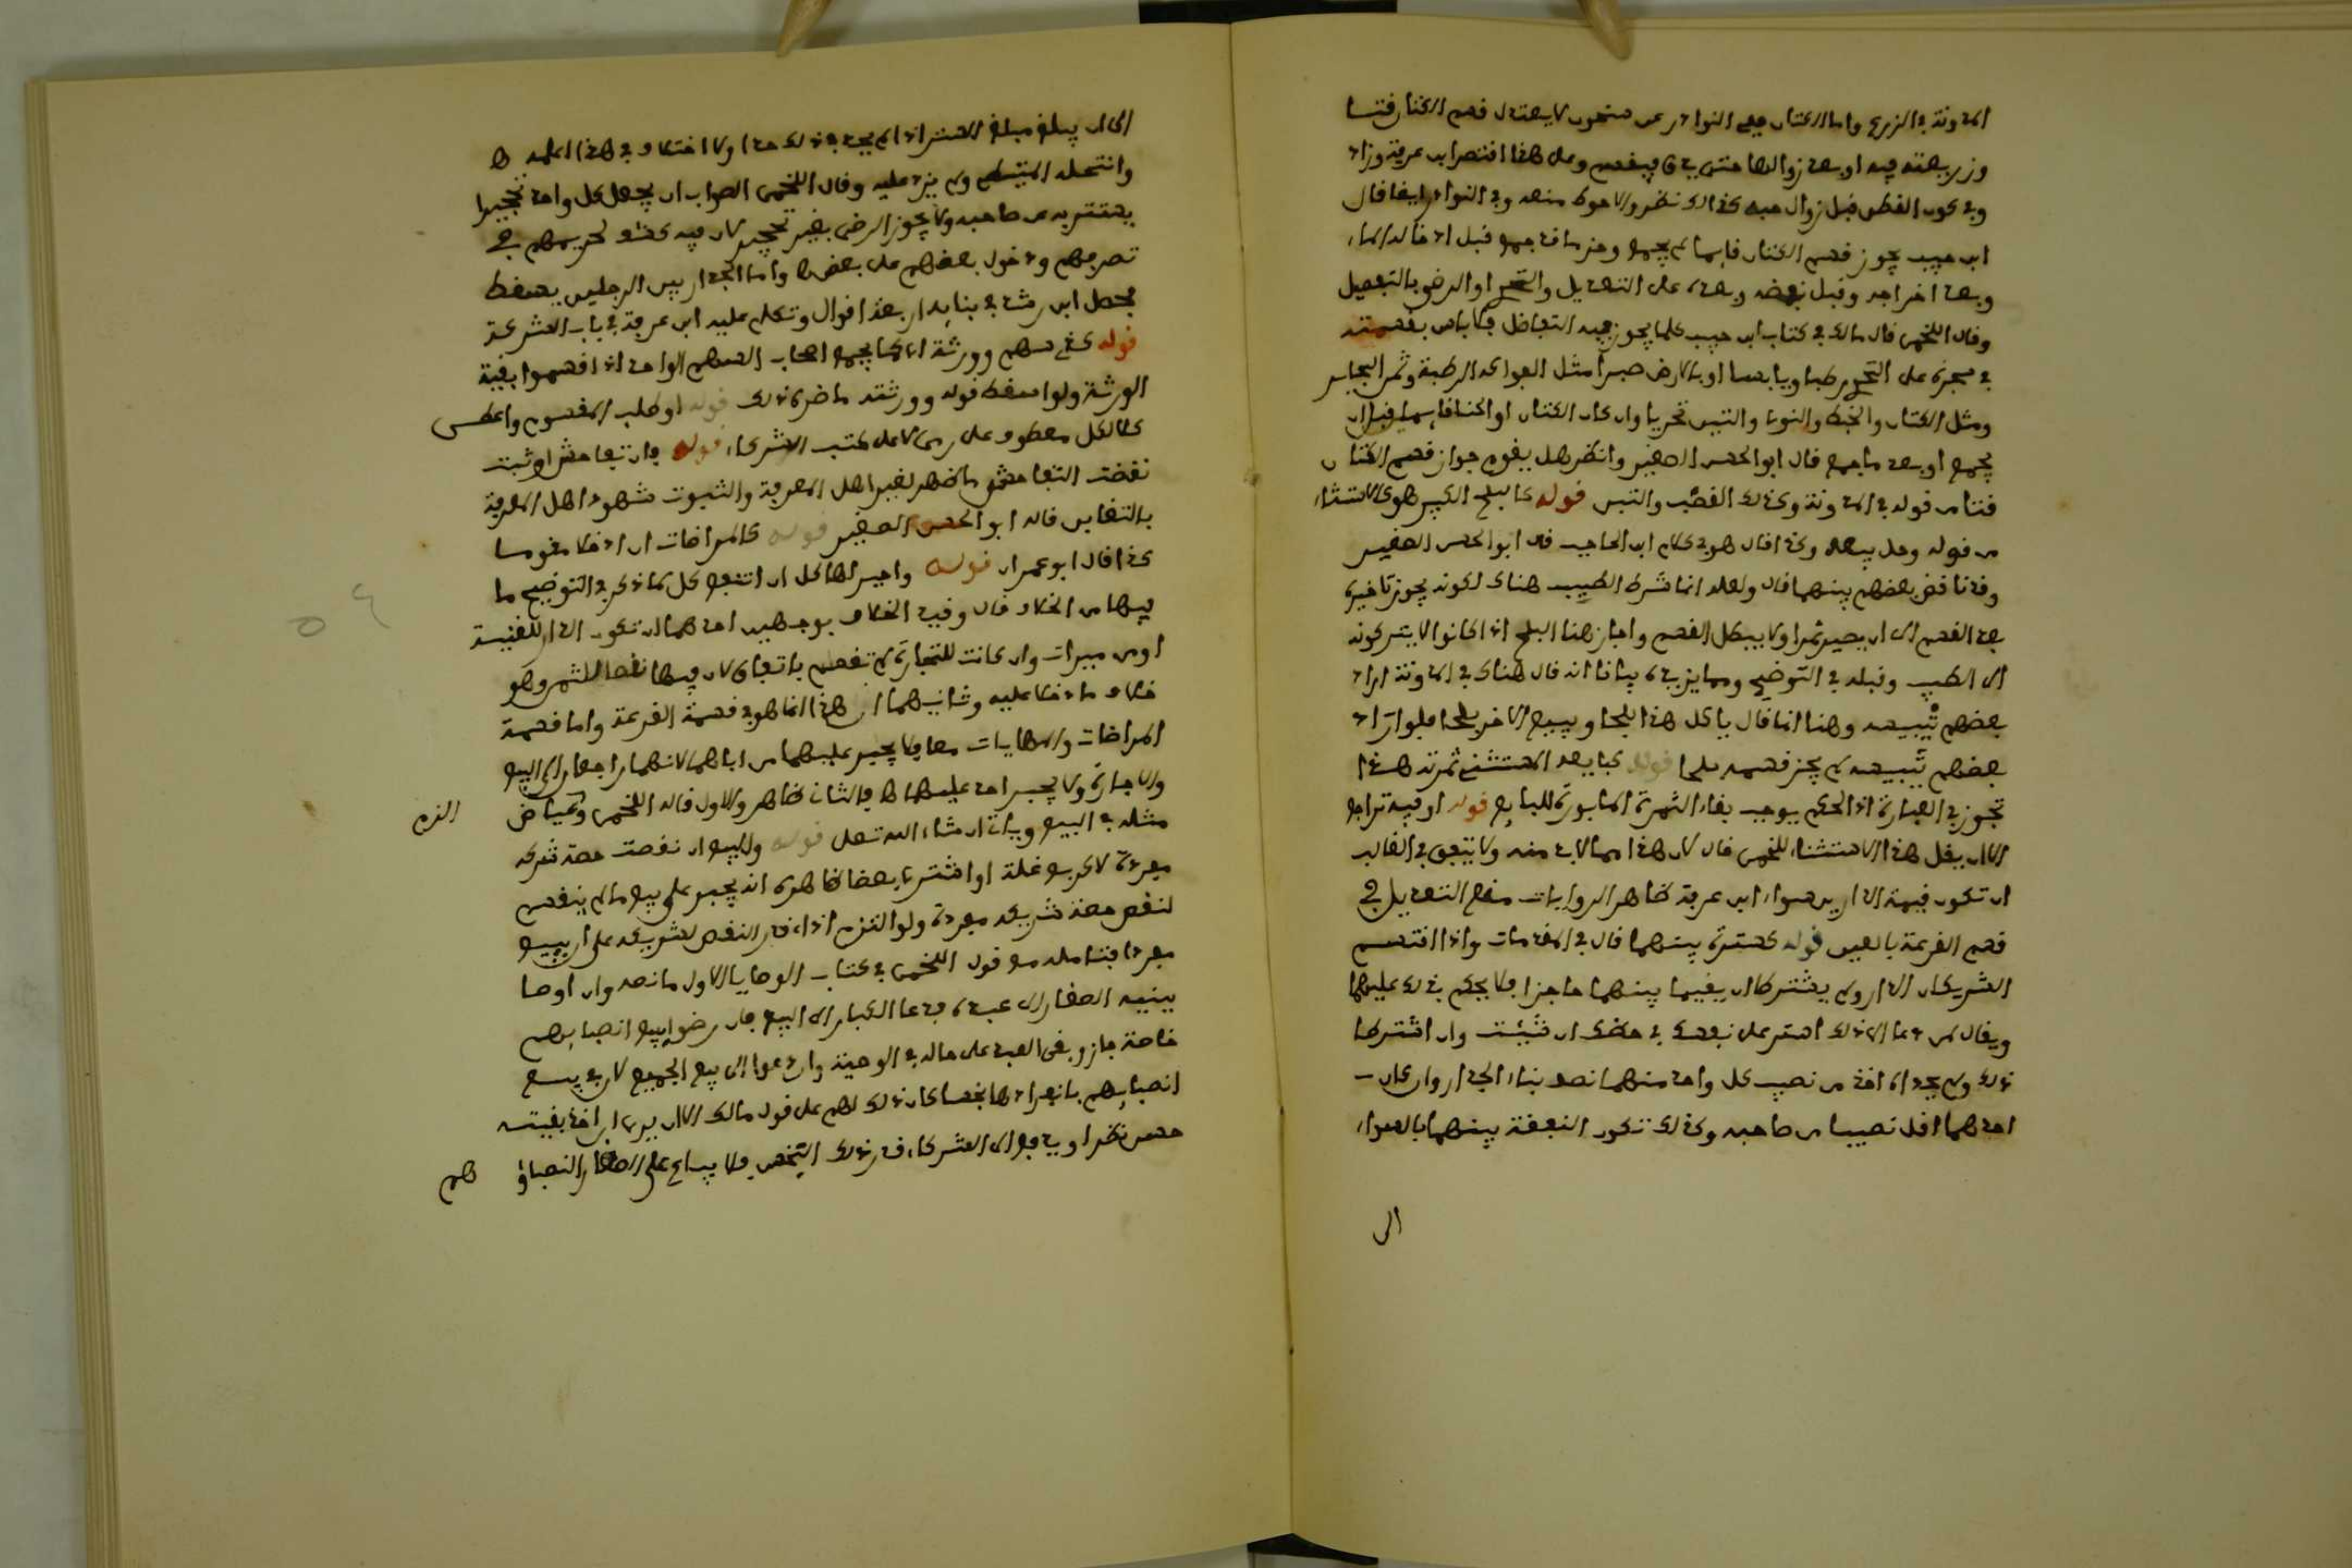 المدونة في الزرع واما الكتان ففي النوادر عن سحنون لا يعتدل قسم الكتان قتا
وزريعته فيه او بعد زوالها حتى يدق فيقسم وعلى هذا اقتصر ابن عرفة وزاد
وفي كون القطن قبل زوال حبه كذلك نظر والاحوط منعه وفي النوادر ايضا قال
ابن حبيب يجوز قسم الكتان قايما لم يجمع وحزما قد جمع قبل ادخاله الماء
وبعد اخراجه وقبل نفضه وبعده على التعديل والتحري او الرضى بالتفضيل
وقال اللخمي قال مالك في كتاب ابن حبيب كلما يجوز فيه التفاضل فلا باس بقسمته
في شجره على التحري رطبا ويابسا او بالارض صبرا مثل الفواكه الرطبة وثمر
ومثل الكتان والخبط والنوى والتبن تحريا وان كان الكتان او الحنا قايما قبل ان
يجمع او بعد ما جمع قال ابو الحسن الصغير وانظر هل يقوم جواز قسم الكتان
قتا من قوله في المدونة وكذلك القضب والتبن قوله كالبلح الكبير هو كالاستثناء
من قوله وحل بيعه وكذا قال هو في كلام ابن الحاجب قال ابو الحسن الصغير
وقد ناقض بعضهم بينهما قال ولعله انما شرط الطيب هناك لكونه يجوز تاخيره
بعد القسم الى ان يصير تمرا ولا يبطل القسم واجاز هنا البلح اذا كانوا لا يتركونه
الى الطيب وقبله في التوضيح ومما يزيده بيانا انه قال هناك في المدونة اراد
بعضهم تيبيسه وهنا انما قال ياكل هذا بلحا ويبيع الاخر بلحا فلو اراد
بعضهم تيبيسه لم يجز قسمه بلحا قوله كبايعه المستثني ثمرته هذا
تجوز في العبارة اذ الحكم يوجب بقاء الثمرة المابورة للبايع قوله او فيه تراجع
الا ان يقل هذا الاستثناء للخمي قال لان هذا مما لابد منه ولا يتفق في الغالب
ان تكون قيمة الدارين سواء ابن عرفة ظاهر الروايات منع التعديل في
قسم القرعة بالعين قوله كسترة بينهما قال في المقدمات واذا اقتسم
الشريكان الدار ولم يشترطا ان يقيما بينهما حاجزا فلا يحكم بذلك عليهما
ويقال لمن دعا الى ذلك استر على نفسك في حظك ان شئت وان اشترطا
ذلك ولم يحداه اخذ من نصيب كل واحد منهما نصف بناء الجدار وان كان
احدهما اقل نصيبا من صاحبه وكذلك تكون النفقة بينهما بالسواء
الى
الى ان يبلغ مبلغ الستر اذا لم يحد في ذلك حدا ولا اختلاف في هذا اعلمه
وانتحله المتيطي ولم يزد عليه وقال اللخمي الصواب ان يجعل كل واحد تحجيرا
يستتر به من صاحبه ولا يجوز الرضى بغير تحجير لان فيه كشف لحريمهم في
تصرفهم ودخول بعضهم على بعض واما الجدار بين الرجلين يسقط
محصل ابن رشد في بنايه اربعة اقوال وتكلم عليه ابن عرفة في باب الشركة
قوله كذي سهم وورثة اي كما يجمع اصحاب السهم الواحد اذا قسموا بقية
الورثة ولو اسقط قوله وورثته ما ضره ذلك قوله او طلب المقسوم واعطى
كلا لكل معطوف على رمى لا على كتب الشركاء قوله فان تفاحش او ثبت
نقضت التفاحش ما ظهر لغير اهل المعرفة والثبوت شهود اهل المعرفة
بالتغابن قاله ابو الحسن الصغير قوله كالمراضات ان ادخلا مقوما
كذا قال ابو عمران قوله واجبر لها كل ان انتفع كل كما ذكر في التوضيح ما
فيها من الخلاف قال وقيد الخلاف بوجهين احدهما ان تكون الدار للقنية
او من ميراث وان كانت للتجارة لم تقسم باتفاق لان فيها نقصا للثمن وهو
خلاف ما دخلا عليه وثانيهما ان هذا انما هو في قسمة القرعة واما قسمة
المراضات والمهايات معا فلا يجبر عليهما من اباهما لانهما راجعان الى البيع
والاجارة ولا يجبر احد عليهما فالثاني ظاهر والاول قاله اللخمي وعياض
مثله في البيع وياتي ان شاء الله تعلى قوله وللبيع ان نقصت حصة شريكه
مفردة لا كربع غلة او اشترى بعضا ظاهره انه يجبر على بيع ما لم ينقسم
لنقص حصة شريكه مفردة ولو التزم اداء قدر النقص لشريكه على ان يبيع
مفردا فتامله مع قول اللخمي في كتاب الوصايا الاول ما نصه وان اوصى
ببنيه الصغار الى عبده فدعا الكبار الى البيع فان رضوا ببيع انصبايهم
خاصة جاز وبقي العبد على حاله في الوصية وان دعوا الى بيع الجميع لان في بيع
انصبايهم بانفرادها بخسا كان ذلك لهم على قول مالك الا ان يرى ان اخذ بقيته
حسن نظر او يدفع الى الشركاء قدر ذلك البخس فلا يباع على الصغار انصباؤ
هم